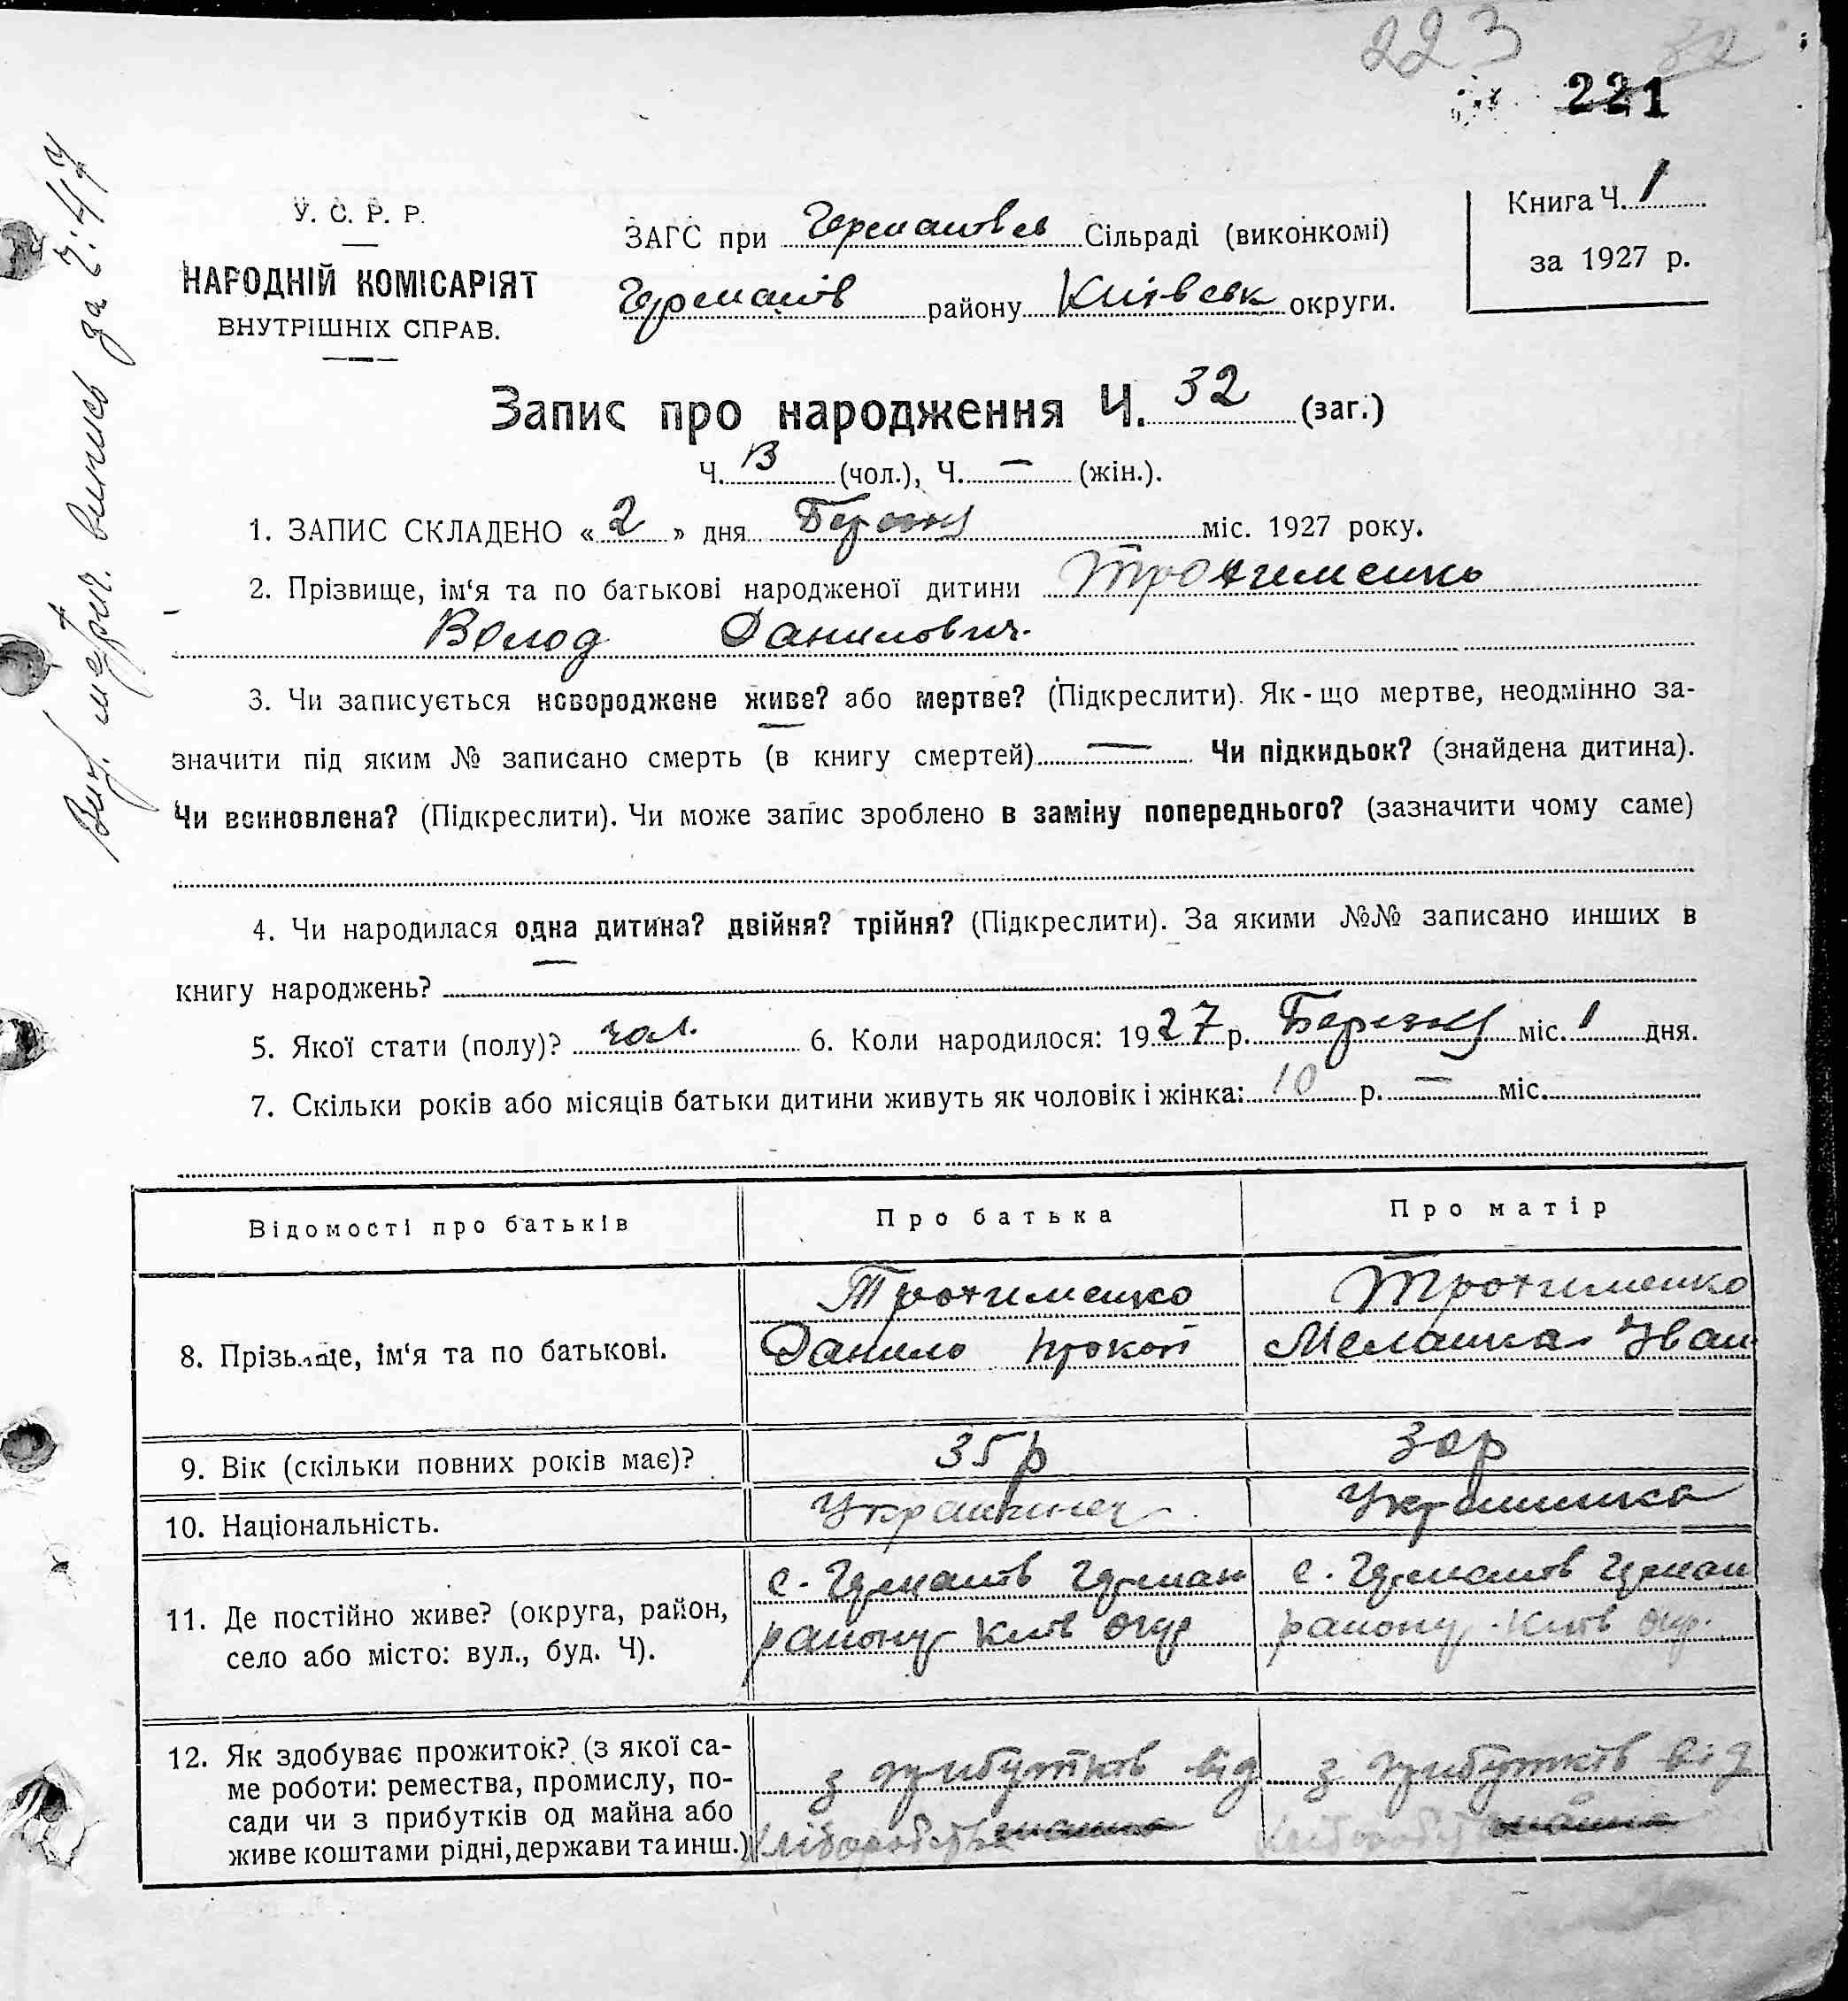 223 32
221
У. С. Р. Р.
НАРОДНІЙ КОМІСАРІЯТ
ВНУТРІШНІХ СПРАВ.
ЗАГС при Германовск Сільраді (виконкомі)
Германів району Київськ округи.
Книга Ч. 1
за 1927 р.
Вид. метрич. випись за Ч: 47
Запис про народження Ч. 32 (заг.)
Ч. 13 (чол.), Ч. — (жін.).
1. ЗАПИС СКЛАДЕНО « 2 » дня Березня міс. 1927 року.
2. Прізвище, ім‘я та по батькові народженої дитини Трохименко
Волод Данилович.
3. Чи записується новороджене живе? або мертве? (Підкреслити). Як-що мертве, неодмінно за-
значити під яким № записано смерть (в книгу смертей) — Чи підкидьок? (знайдена дитина).
Чи всиновлена? (Підкреслити). Чи може запис зроблено в заміну попереднього? (зазначити чому саме)
4. Чи народилася одна дитина? двійня? трійня? (Підкреслити). За якими №№ записано инших в
книгу народжень?
5. Якої стати (полу)? чол. 6. Коли народилося: 1927 р. Березня міс. 1 дня.
7. Скільки років або місяців батьки дитини живуть як чоловік і жінка: 10 р. — міс.
Відомості про батьків Про батька Про матір
8. Прізвище, ім‘я та по батькові.
Трохименко
Данило Прокоп
Трохименко
Мелашка Іван
9. Вік (скільки повних років має)? 35 р 30 р
10. Національність. Українець Українка
11. Де постійно живе? (округа, район,
село або місто: вул., буд. Ч).
с. Германів Герман
району Київ окр
с. Германів Герман
району Київ окр.
12. Як здобуває прожиток? (з якої са-
ме роботи: ремества, промислу, по-
сади чи з прибутків од майна або
живе коштами рідні, держави та инш.)
з прибутків від
хліборобства
з прибутків від
хліборобства